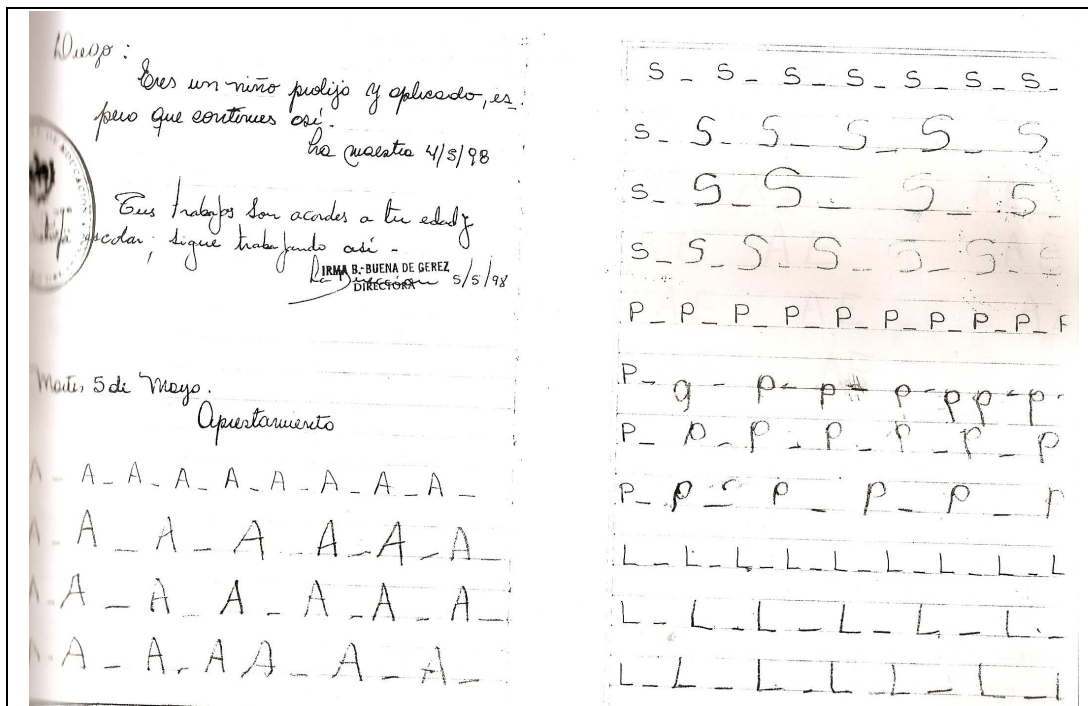 Diego:
Eres un niño prolijo y aplicado, es_
pero que continues así.
La maestra 4/5/98
Tus trabajos son acordes a tu edad y
escolar; sigue trabajando así -
La Dirección 5/5/98
IRMA B. BUENA DE GEREZ
DIRECTORA
Martes 5 de Mayo.
Aprestamiento
A - A - A - A - A - A - A - A - A -
A - A - A - A - A - A - A -
A - A - A - A - A - A - A -
A - A - A - A A - A - A -
S - S - S - S - S - S - S -
S - S - S - S - S - S
S - S - S - S - S
S - S - S - S - S - S - S
P - P - P - P - P - P - P - P - P - P
P - g - p - p - p - p p - p -
P - p - p - p - p - p - p
P - p - p - p - p - p
L - L - L - L - L - L - L - L - L
L - L - L - L - L - L -
L - L - L - L - L - L - L